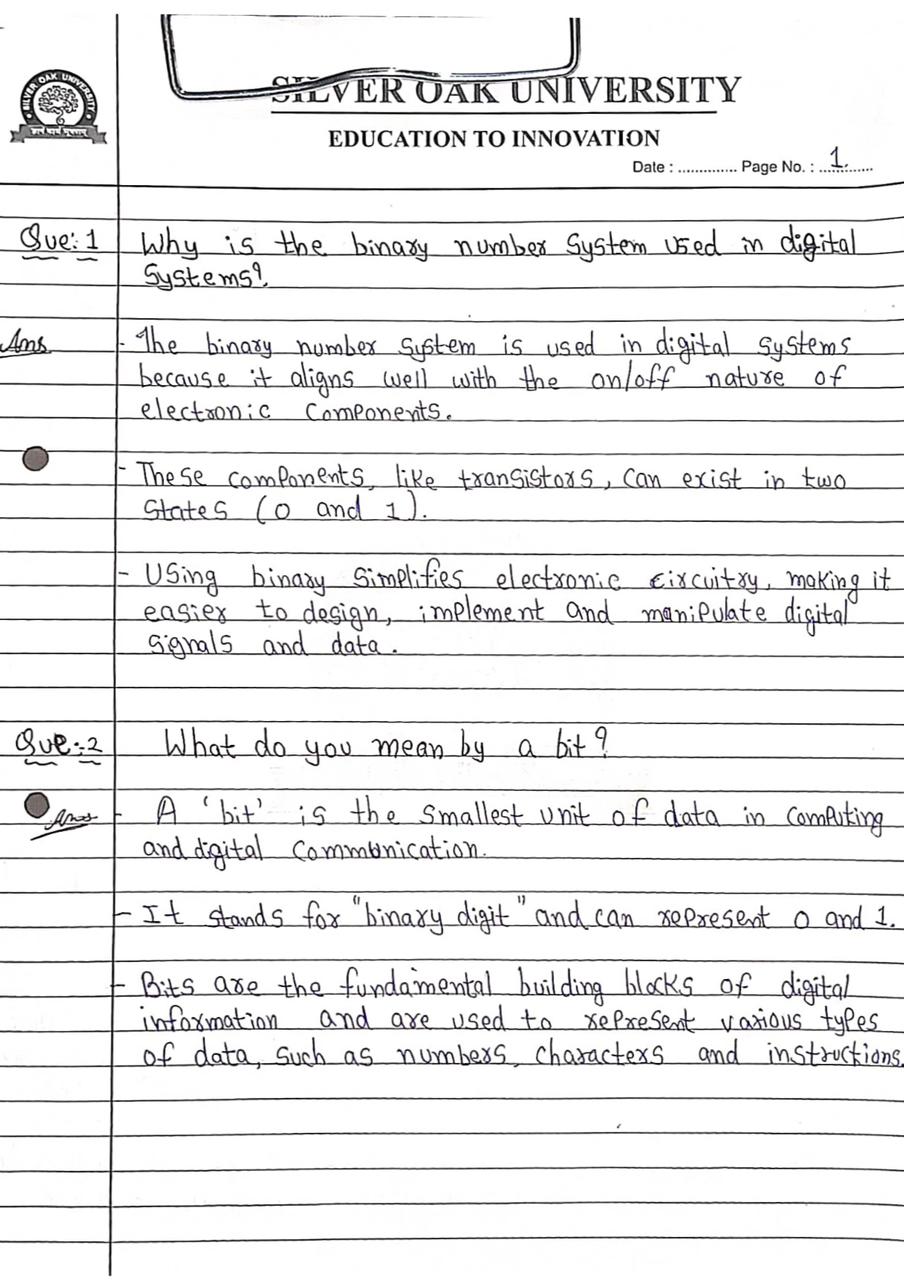 SILVER OAK UNIVERSITY
EDUCATION TO INNOVATION
Date : .............. Page No. : ...1..........
SILVER OAK UNIVERSITY
Que:1 Why is the binary number system used in digital
systems?
Ans - The binary number system is used in digital systems
because it aligns well with the on/off nature of
electronic components.
- These components, like transistors, can exist in two
states (0 and 1).
- Using binary simplifies electronic circuitry, making it
easier to design, implement and manipulate digital
signals and data.
Que:-2 What do you mean by a bit?
Ans - A 'bit' is the smallest unit of data in computing
and digital communication.
- It stands for "binary digit" and can represent 0 and 1.
- Bits are the fundamental building blocks of digital
information and are used to represent various types
of data, such as numbers, characters and instructions.